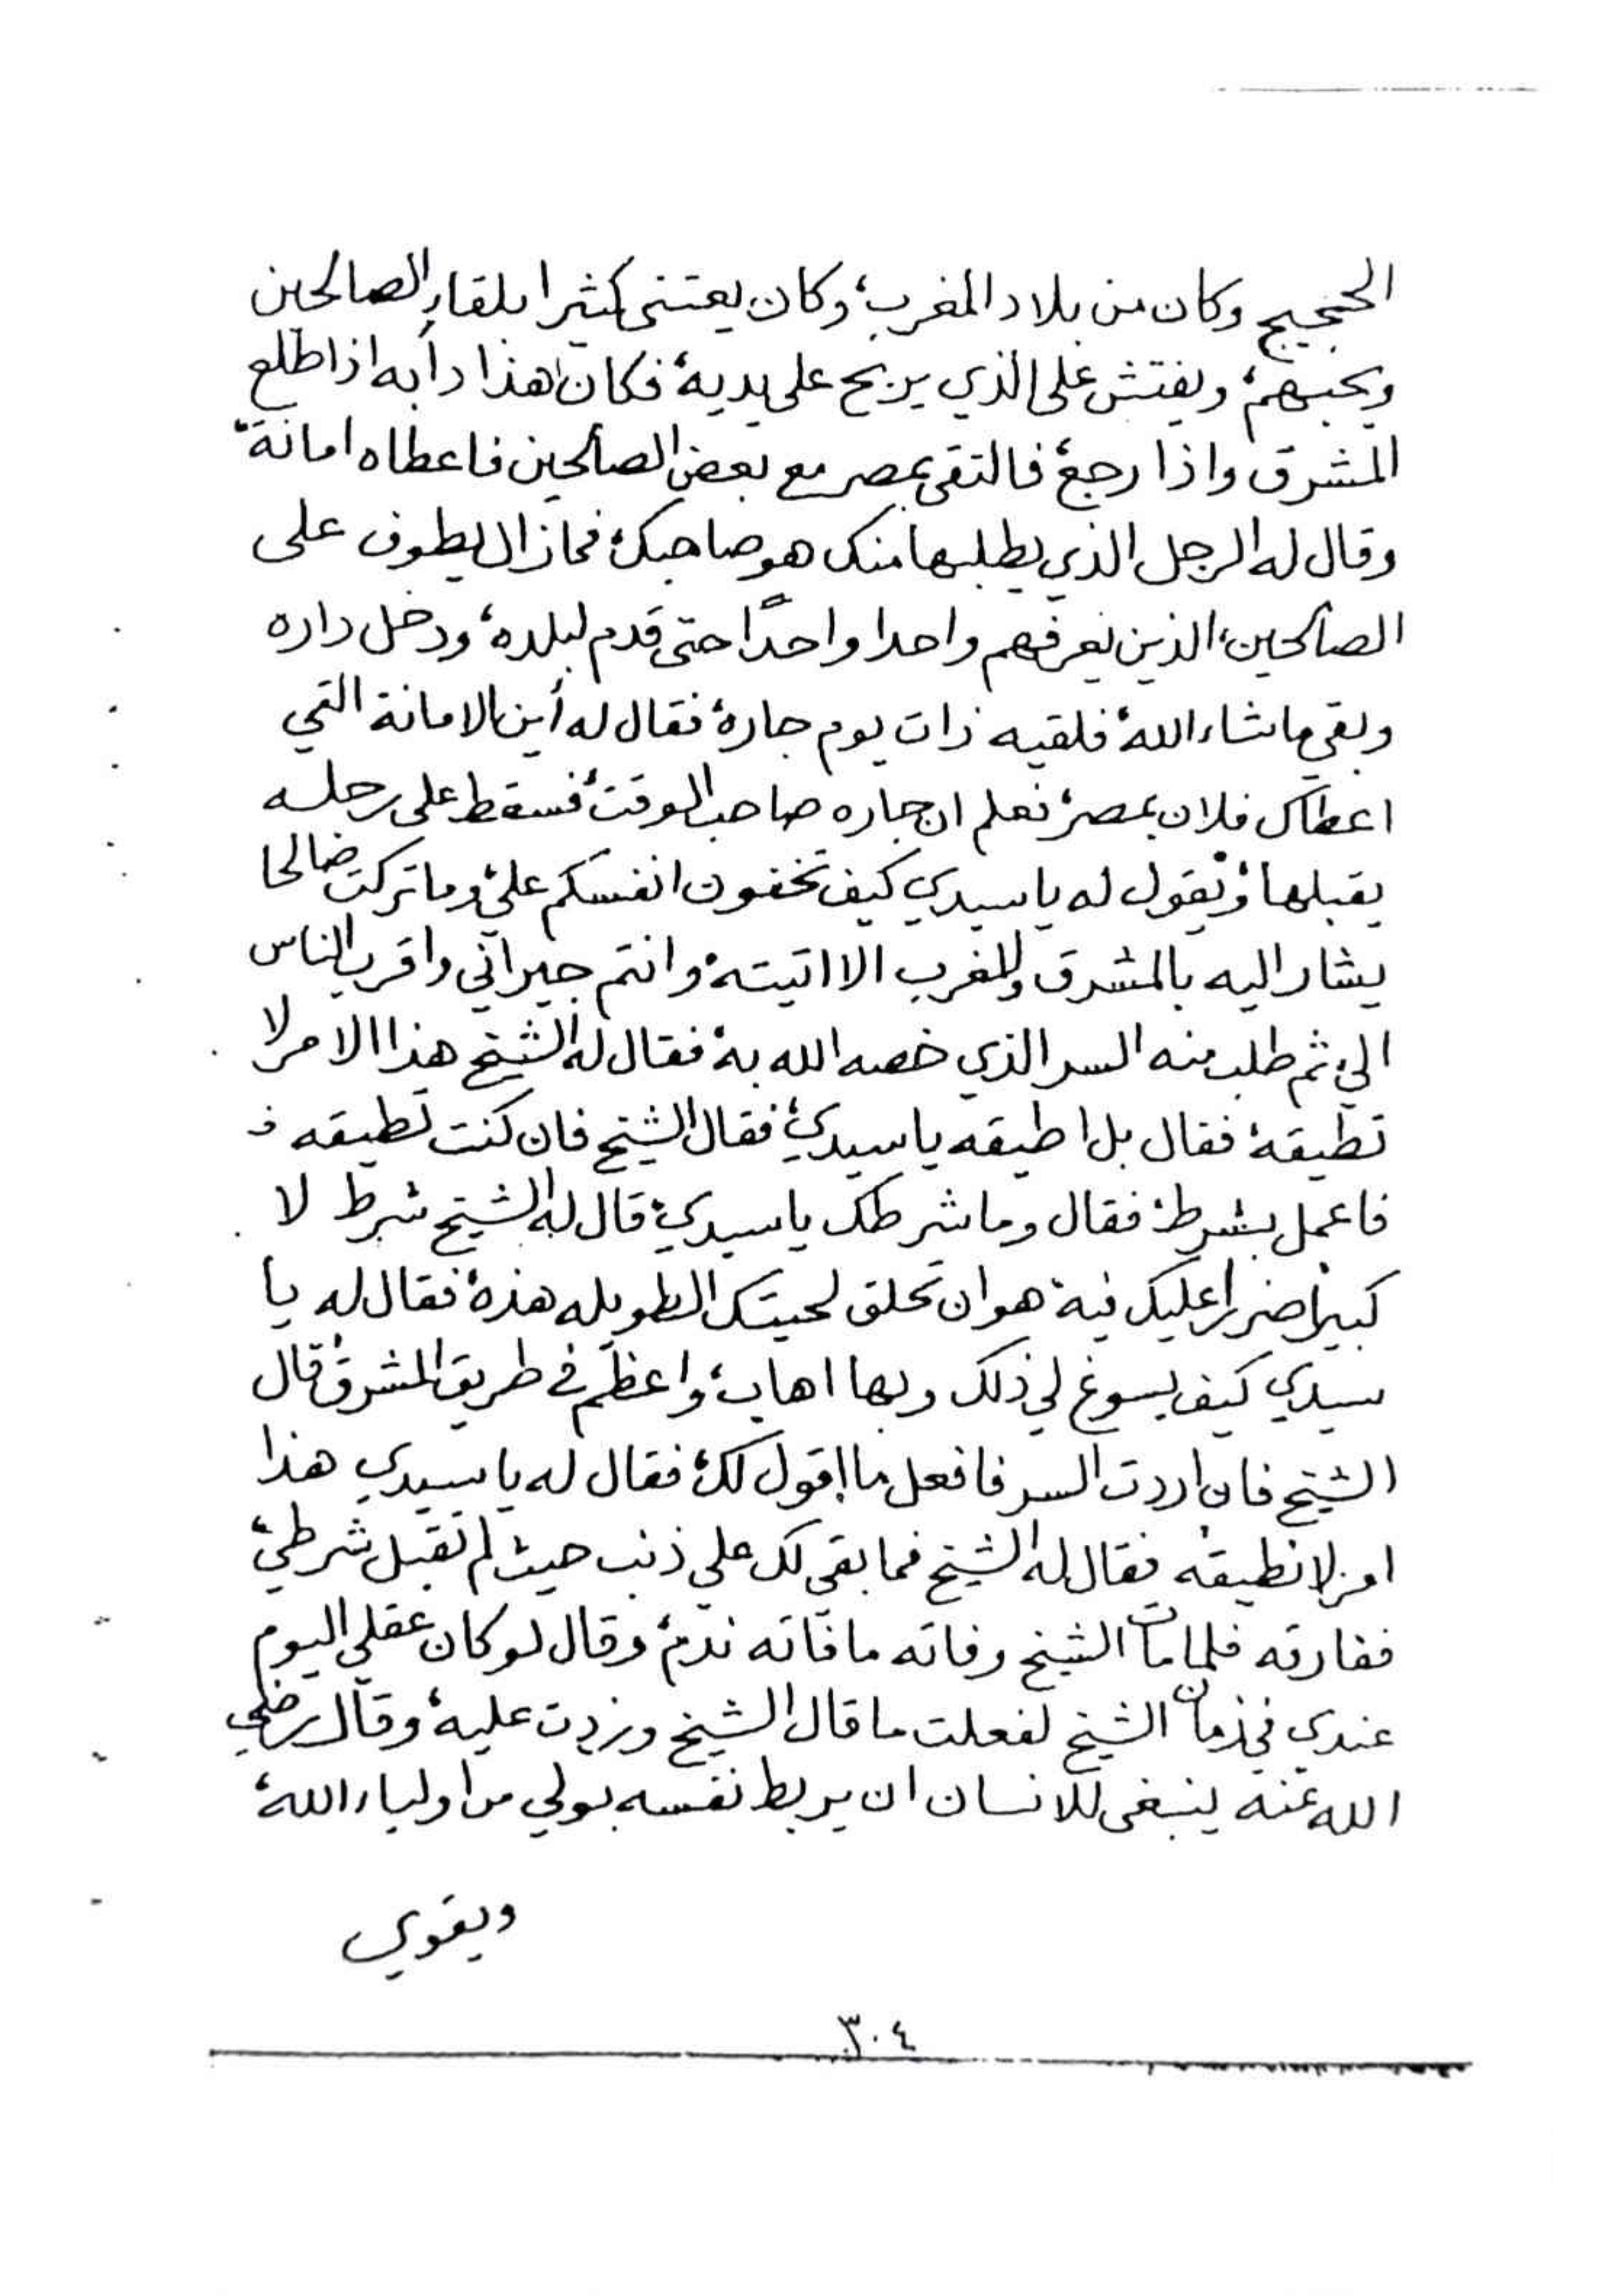 الحجيج وكان من بلاد المغرب، وكان يعتني كثيرا بلقاء الصالحين
ويحبهم، ويفتش على الذي يربح على يديه، فكان هذا دأبه اذا طلع
المشرق واذا رجع، فالتقى بمصر مع بعض الصالحين فاعطاه امانة،
وقال له الرجل الذي يطلبها منك هو صاحبك، فمازال يطوف على
الصالحين، الذين يعرفهم واحدا واحدًا حتى قدم لبلده، ودخل داره
وبقي ماشاء الله، فلقيه ذات يوم جاره، فقال له أين الامانة التي
اعطاك فلان بمصر، فعلم ان جاره صاحب الوقت، فسقط على رجله
يقبلها، ويقول له يا سيدي كيف تخفون انفسكم علي، وما تركت صالحا
يشار اليه بالمشرق والمغرب الا اتيته، وانتم جيراني واقرب الناس
الي، ثم طلب منه السر الذي خصه الله به، فقال له الشيخ هذا الامر لا
تطيقه، فقال بل اطيقه يا سيدي، فقال الشيخ فان كنت تطيقه ف
فاعمل بشرط، فقال وما شرطك يا سيدي، قال له الشيخ شرط لا
كبير ضرر عليك فيه، هو ان تحلق لحيتك الطويله هذه، فقال له يا
سيدي كيف يسوغ لي ذلك وبها اهاب، واعظم في طريق المشرق، قال
الشيخ فان اردت السر فافعل ما اقول لك، فقال له يا سيدي هذا
امر لا نطيقه فقال له الشيخ فما بقي لك علي ذنب حيث لم تقبل شرطي،
ففارقه فلما مات الشيخ وفاته ما فاته ندم، وقال لو كان عقلي اليوم
عندي في زمان الشيخ لفعلت ما قال الشيخ وزدت عليه، وقال رضي
الله عنه ينبغي للانسان ان يربط نفسه بولي من اولياء الله،
ويقوي
٣٠٤